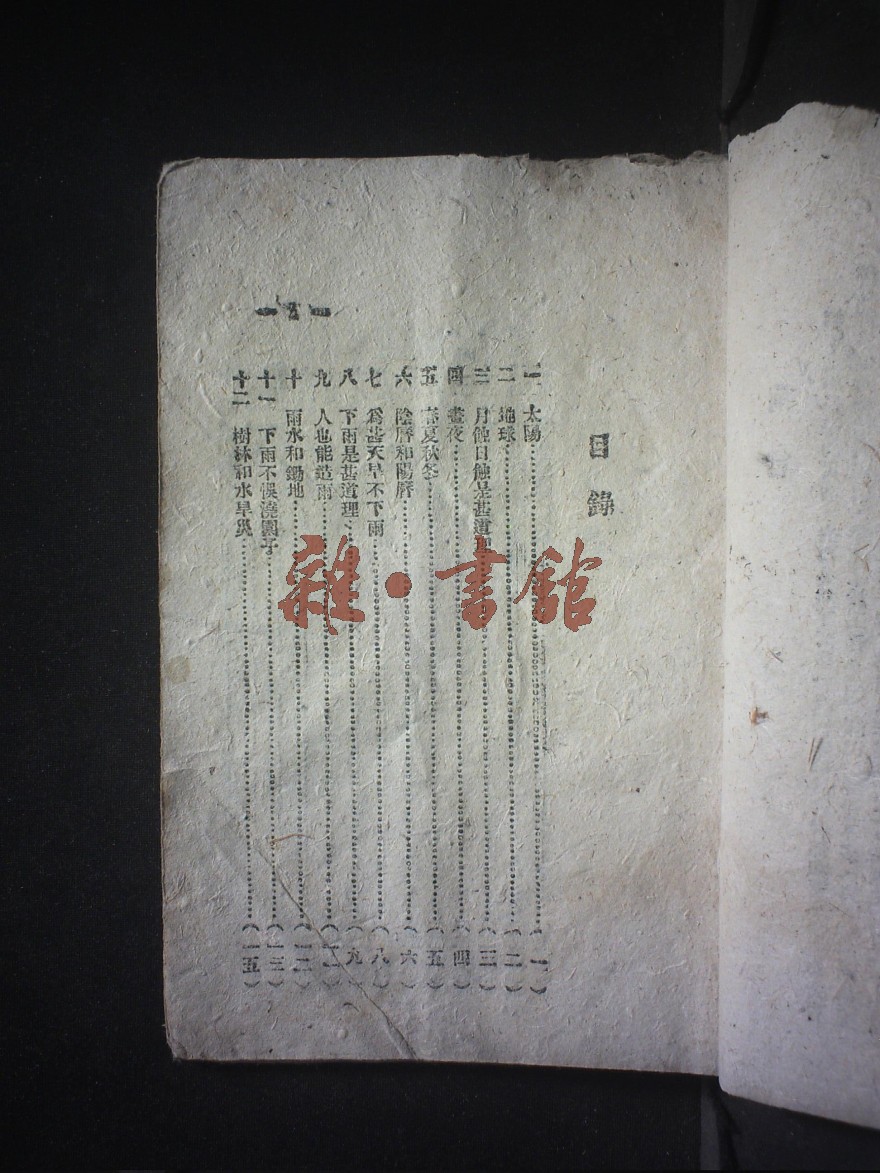 目錄
一 太陽……(一)
二 地球……(二)
三 月蝕日蝕是甚道理……(三)
四 晝夜……(四)
五 春夏秋冬……(五)
六 陰曆和陽曆……(六)
七 爲甚天旱不下雨……(八)
八 下雨是甚道理……(九)
九 人也能造雨……
十 雨水和鋤地……(一二)
十一 下雨不悞澆園子……(一三)
十二 樹林和水旱災……(一五)
雜·書館